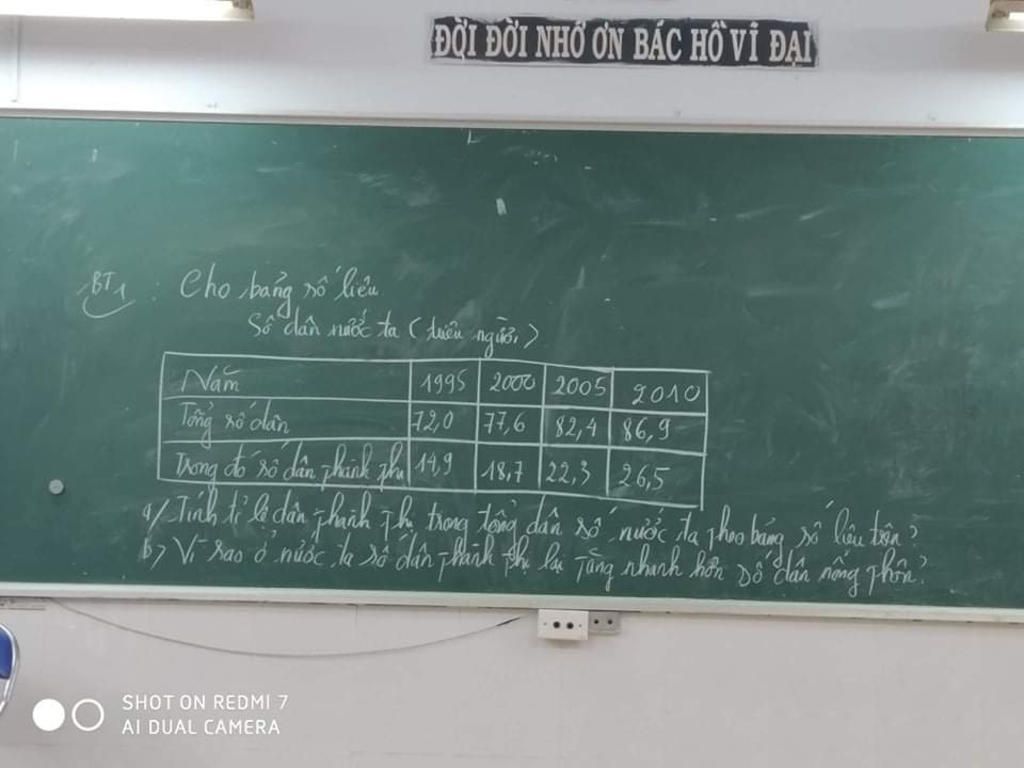 ĐỜI ĐỜI NHỚ ƠN BÁC HỒ VĨ ĐẠI
BT1 : Cho bảng số liệu
Số dân nước ta (triệu người)
Năm 1995 2000 2005 2010
Tổng số dân 72,0 77,6 82,4 86,9
Trong đó số dân thành thị 14,9 18,7 22,3 26,5
a/ Tính tỉ lệ dân thành thị trong tổng dân số nước ta theo bảng số liệu trên?
b/ Vì sao ở nước ta số dân thành thị lại tăng nhanh hơn số dân nông thôn?
SHOT ON REDMI 7
AI DUAL CAMERA